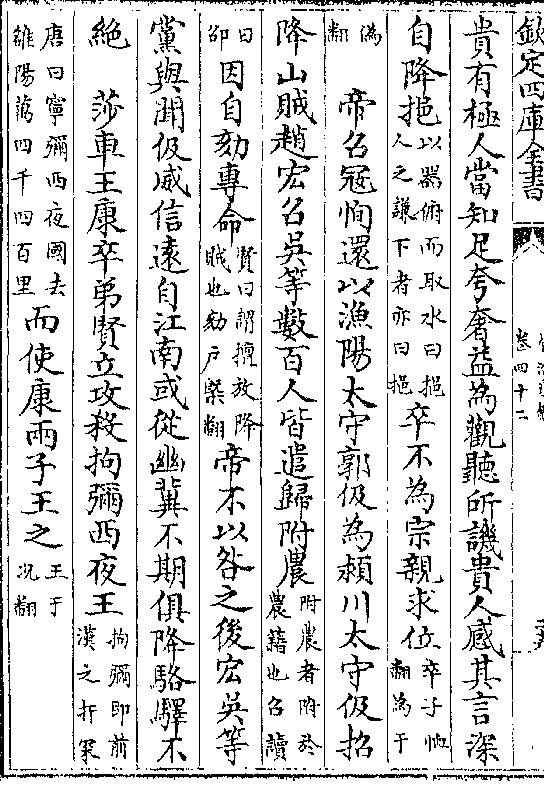 欽定四庫全書
卷四十二
貴有極人當知足夸奢益為觀聽所譏貴人感其言深
自降挹以器俯而取水曰挹人之謙下者亦曰挹卒不為宗親求位卒子恤翻為于
偽翻　帝召寇恂還以漁陽太守郭伋為潁川太守伋招
降山賊趙宏召吳等數百人皆遣歸附農附農者附於農籍也召讀
曰卲因自劾專命賢曰謂擅放降賊也劾戶槩翻帝不以咎之後宏吳等
黨與聞伋威信遠自江南或從幽冀不期俱降駱驛不
絶　莎車王康卒弟賢立攻殺拘彌西夜王拘彌即前漢之扜罙
唐曰寧彌西夜國去雒陽萬四千四百里而使康兩子王之王于况翻